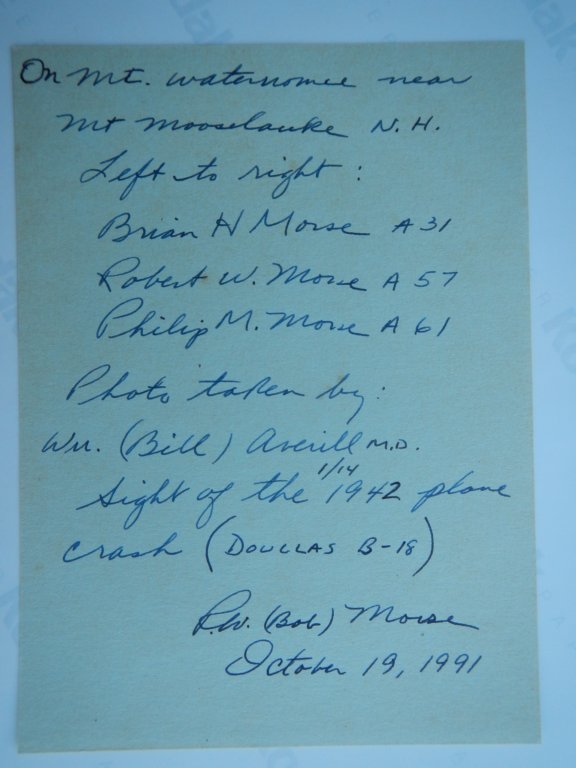 On Mt. waternomee near
Mt Mooselauke N.H.
Left to right :
Brian H Morse A 31
Robert W. Morse A 57
Philip M. Morse A 61
Photo taken by:
Wm. (Bill) Averill M.D.
1/14
Sight of the 1942 plane
crash (DOUGLAS B-18)
R.W. (Bob) Morse
October 19, 1991